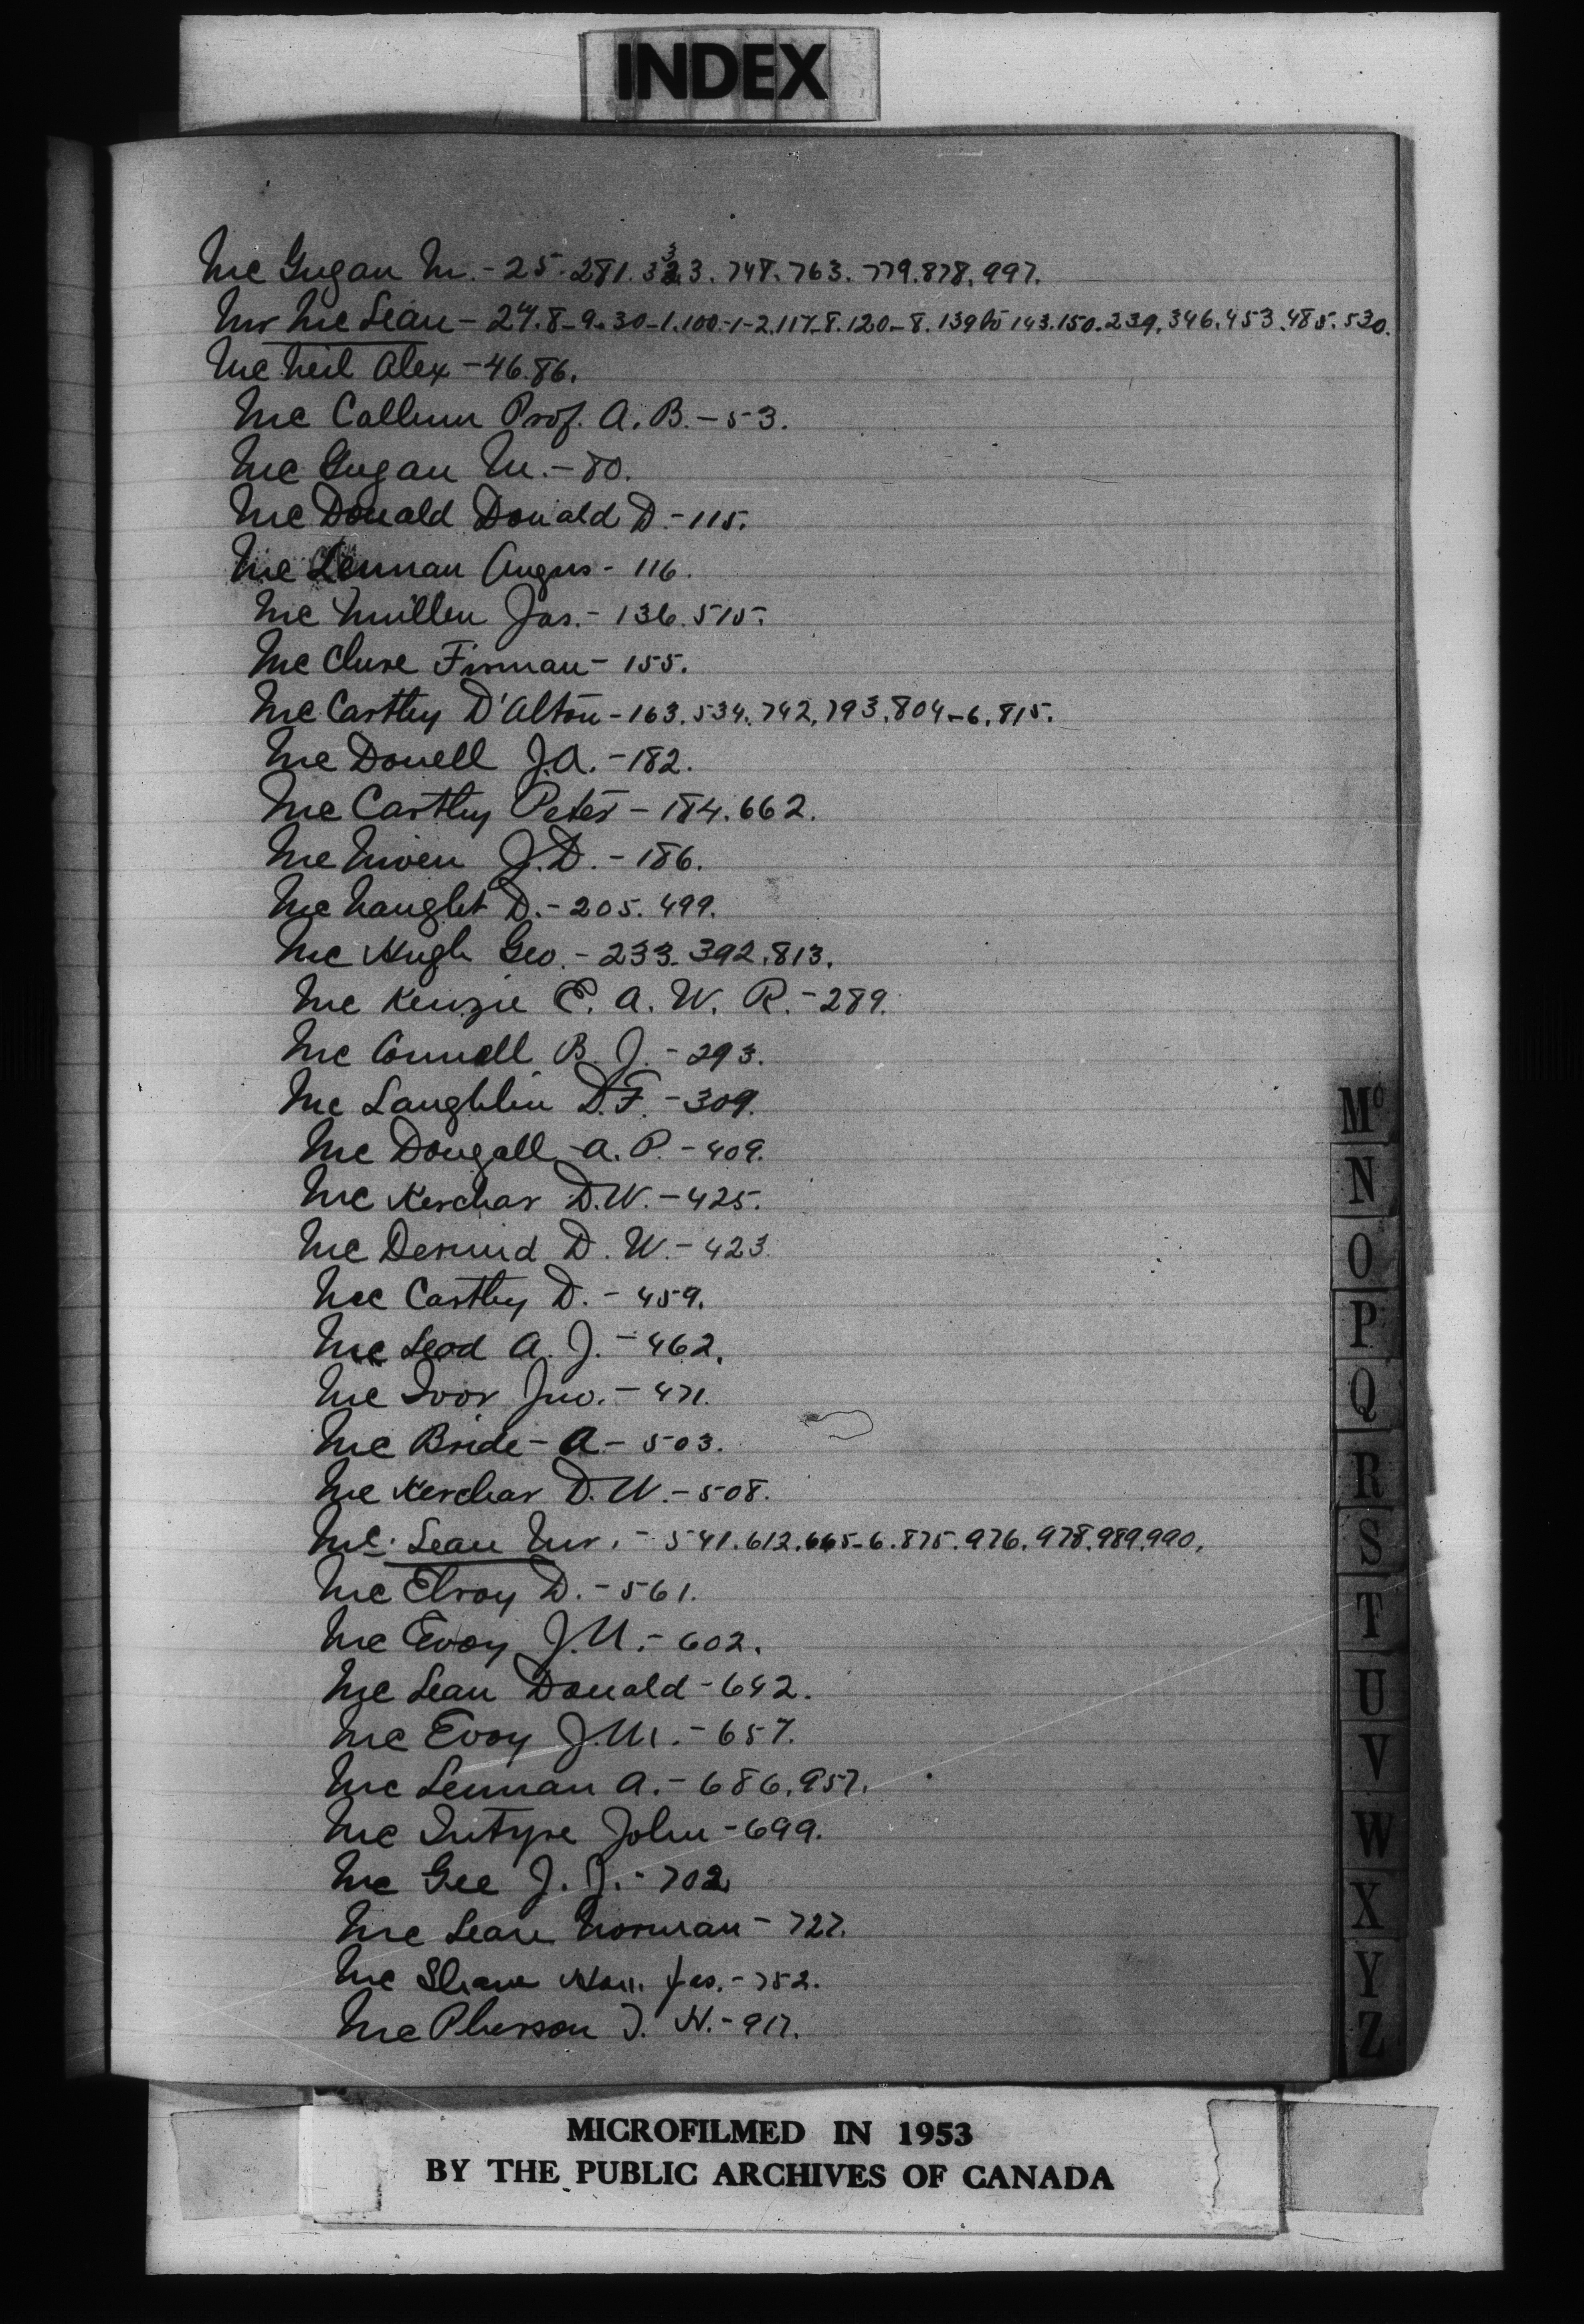 INDEX
Mc Gugan M. - 25. 281. 333. 748. 763. 779. 878. 997.
Mr Mc Lean - 27. 8-9. 30-1. 100-1-2. 117-8. 120-8. 139 to 143. 150. 239. 346. 453. 485. 530.
Mc Neil Alex - 46. 86.
Mc Callum Prof. A. B. - 53.
Mc Gugan M. - 80.
Mc Donald Donald D. - 115.
Mc Lennan Angus - 116.
Mc Mullen Jas. - 136. 515.
Mc Clure Firman - 155.
Mc Carthy D'Alton - 163. 534. 742. 793. 804-6. 815.
Mc Donell J.A. - 182.
Mc Carthy Peter - 184. 662.
Mc Niven J.D. - 186.
Mc Naught D. - 205. 499.
Mc Hugh Geo. - 233. 392. 813.
Mc Kenzie E. A. W. R. - 289.
Mc Connell B. J. - 293.
Mc Laughlin D.F. - 309.
Mc Dougall A. P. - 409.
Mc Kerchar D.W. - 425.
Mc Dermid D. W. - 423
Mc Carthy D. - 459.
Mc Leod A. J. - 462.
Mc Ivor Jno. - 471.
Mc Bride - A - 503.
Mc Kerchar D.W. - 508.
Mc Lean Mr. - 541. 612. 665-6. 875. 976. 978. 989. 990.
Mc Elroy D. - 561.
Mc Evoy J.M. - 602.
Mc Lean Donald - 642.
Mc Evoy J.M. - 657.
Mc Lennan A. - 686. 957.
Mc Intyre John - 699.
Mc Gee J. J. - 702
Mc Lean Norman - 727.
Mc Shane Hon. Jas. - 752.
Mc Pherson T. H. - 917.
Mc
N
O
P
Q
R
S
T
U
V
W
X
Y
Z
MICROFILMED IN 1953
BY THE PUBLIC ARCHIVES OF CANADA